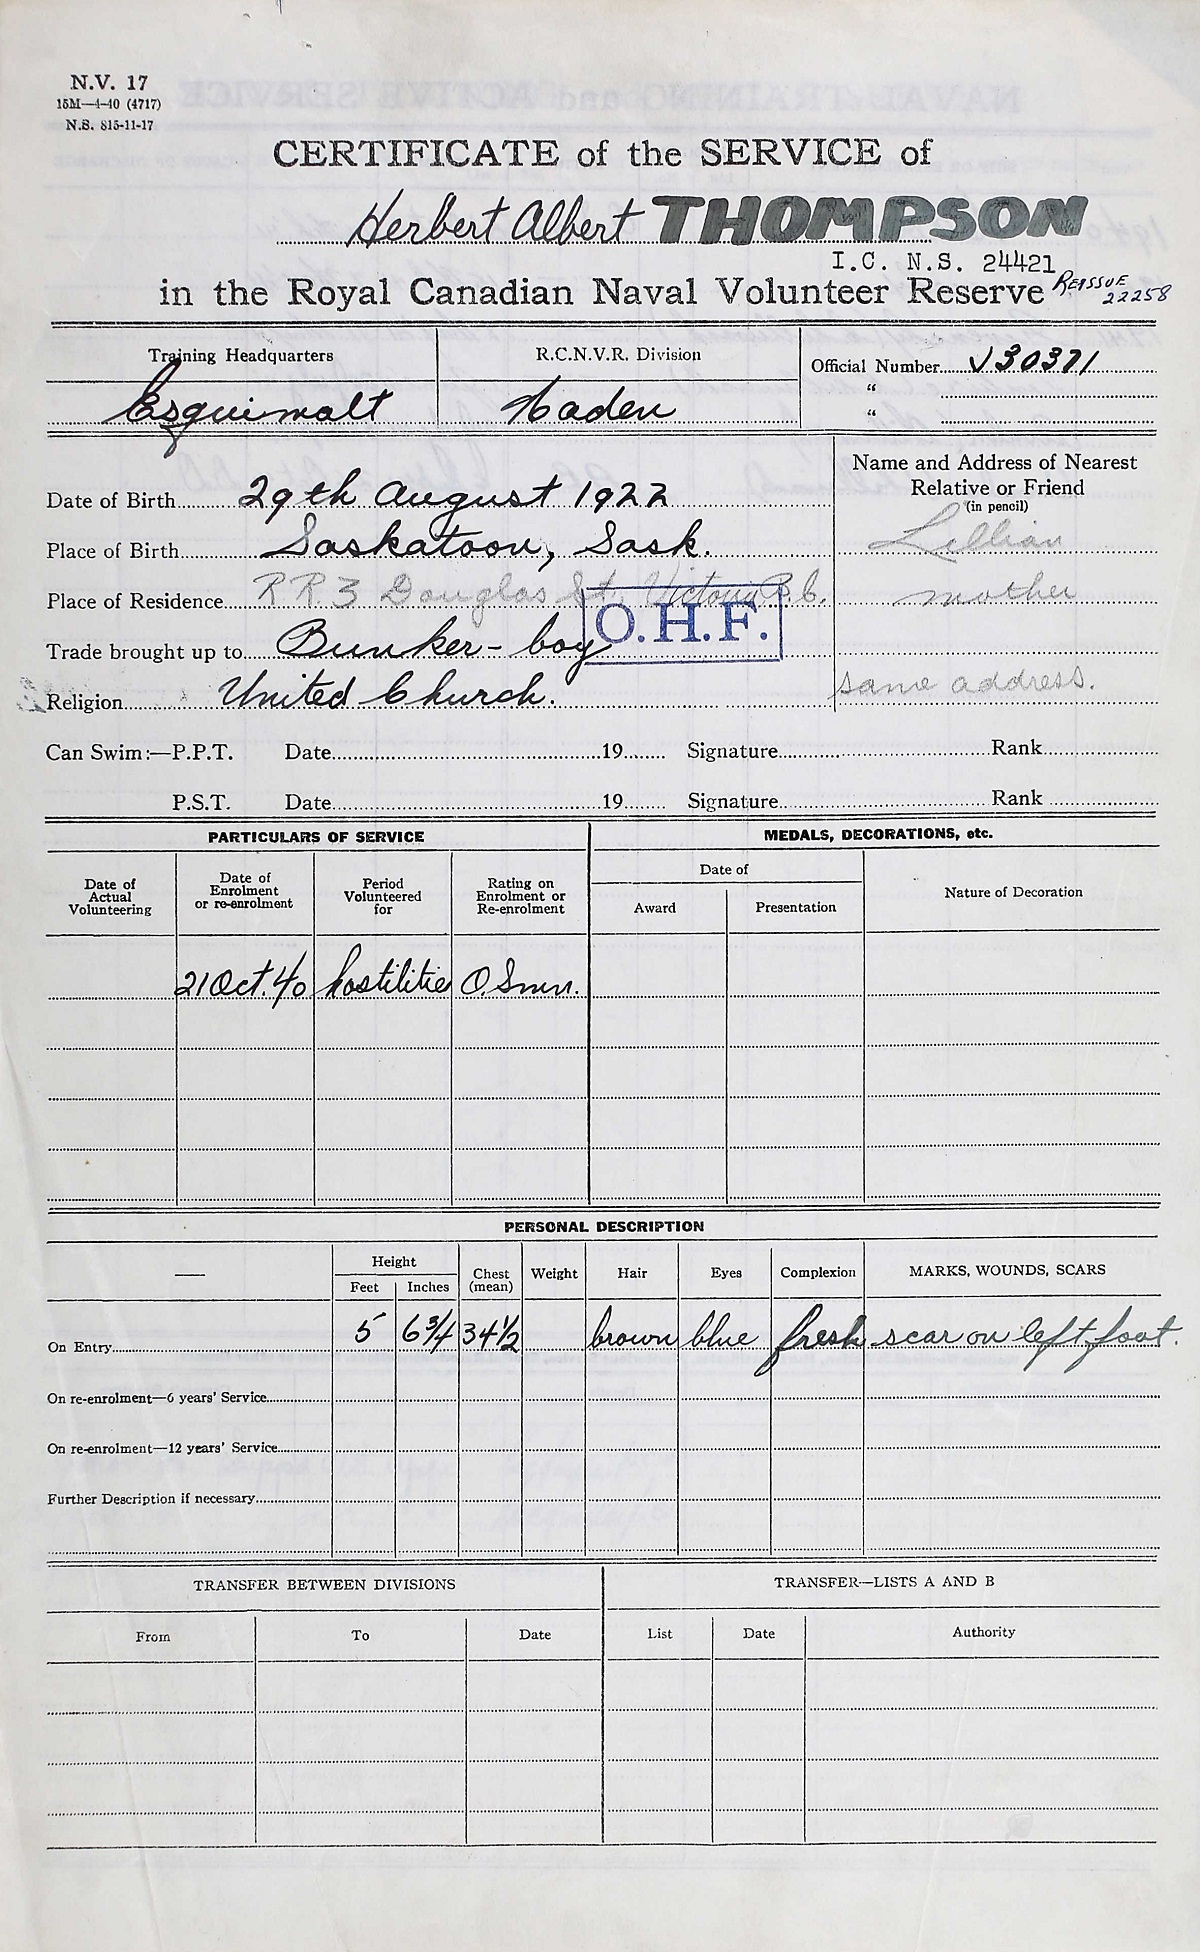 N.V. 17
15M—4-40 (4717)
N.S. 815-11-17
CERTIFICATE of the SERVICE of
Herbert Albert THOMPSON
I.C. N.S. 24421
in the Royal Canadian Naval Volunteer Reserve REISSUE 22258
Training Headquarters
Esquimalt
R.C.N.V.R. Division
Naden
Official Number V30371
"
"
Date of Birth 29th August 1922
Place of Birth Saskatoon, Sask.
Place of Residence R.R. 3 Douglas St. Victoria B.C.
O.H.F.
Trade brought up to Bunker-boy
Religion United Church.
Name and Address of Nearest
Relative or Friend
(in pencil)
Lillian
mother
same address.
Can Swim:—P.P.T. Date 19 Signature Rank
P.S.T. Date 19 Signature Rank
PARTICULARS OF SERVICE
MEDALS, DECORATIONS, etc.
Date of Actual Volunteering
Date of Enrolment or re-enrolment
Period Volunteered for
Rating on Enrolment or Re-enrolment
Date of
Award
Presentation
Nature of Decoration
21 Oct. 40 hostilitie O. Smn.
PERSONAL DESCRIPTION
—
Height
Feet Inches
Chest (mean)
Weight
Hair
Eyes
Complexion
MARKS, WOUNDS, SCARS
On Entry 5 6 3/4 34 1/2 brown blue fresh scar on left foot.
On re-enrolment—6 years' Service
On re-enrolment—12 years' Service
Further Description if necessary
TRANSFER BETWEEN DIVISIONS
TRANSFER—LISTS A AND B
From To Date List Date Authority